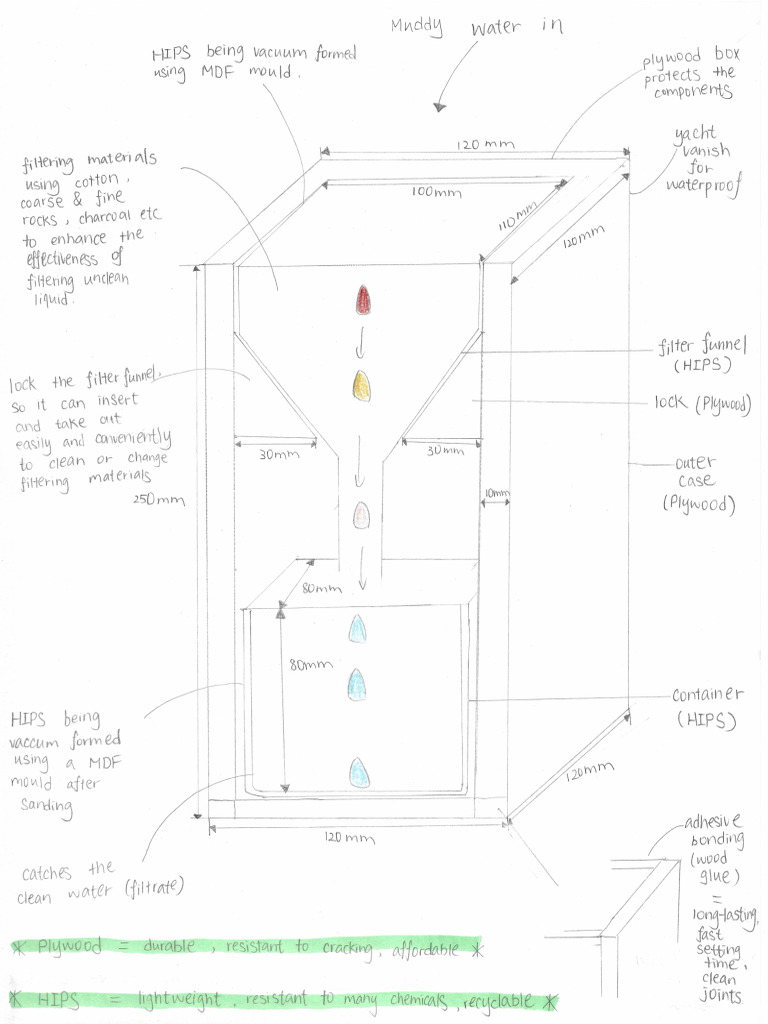 Muddy water in
HIPS being vacuum formed
using MDF mould.
plywood box
protects the
components
120 mm
yacht
vanish
for
waterproof
filtering materials
using cotton,
coarse & fine
rocks, charcoal etc
to enhance the
effectiveness of
filtering unclean
liquid.
100mm
110mm
120mm
filter funnel
(HIPS)
lock the filter funnel,
so it can insert
and take out
easily and conveniently
to clean or change
filtering materials
lock (Plywood)
30mm
30mm
outer
case
(Plywood)
250mm
10mm
80mm
80mm
container
(HIPS)
HIPS being
vaccum formed
using a MDF
mould after
sanding
120mm
120mm
catches the
clean water (filtrate)
adhesive
bonding
(wood
glue)
=
long-lasting,
fast
setting
time,
clean
joints
* Plywood = durable, resistant to cracking, affordable *
* HIPS = lightweight, resistant to many chemicals, recyclable *